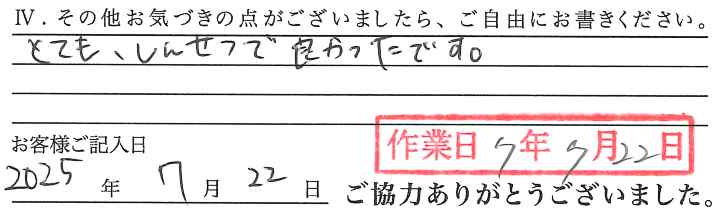 Ⅳ．その他お気づきの点がございましたら、ご自由にお書きください。
とても、しんせつで良かったです。
お客様ご記入日
作業日 7年 7月22日
2025 年 7 月 22 日
ご協力ありがとうございました。